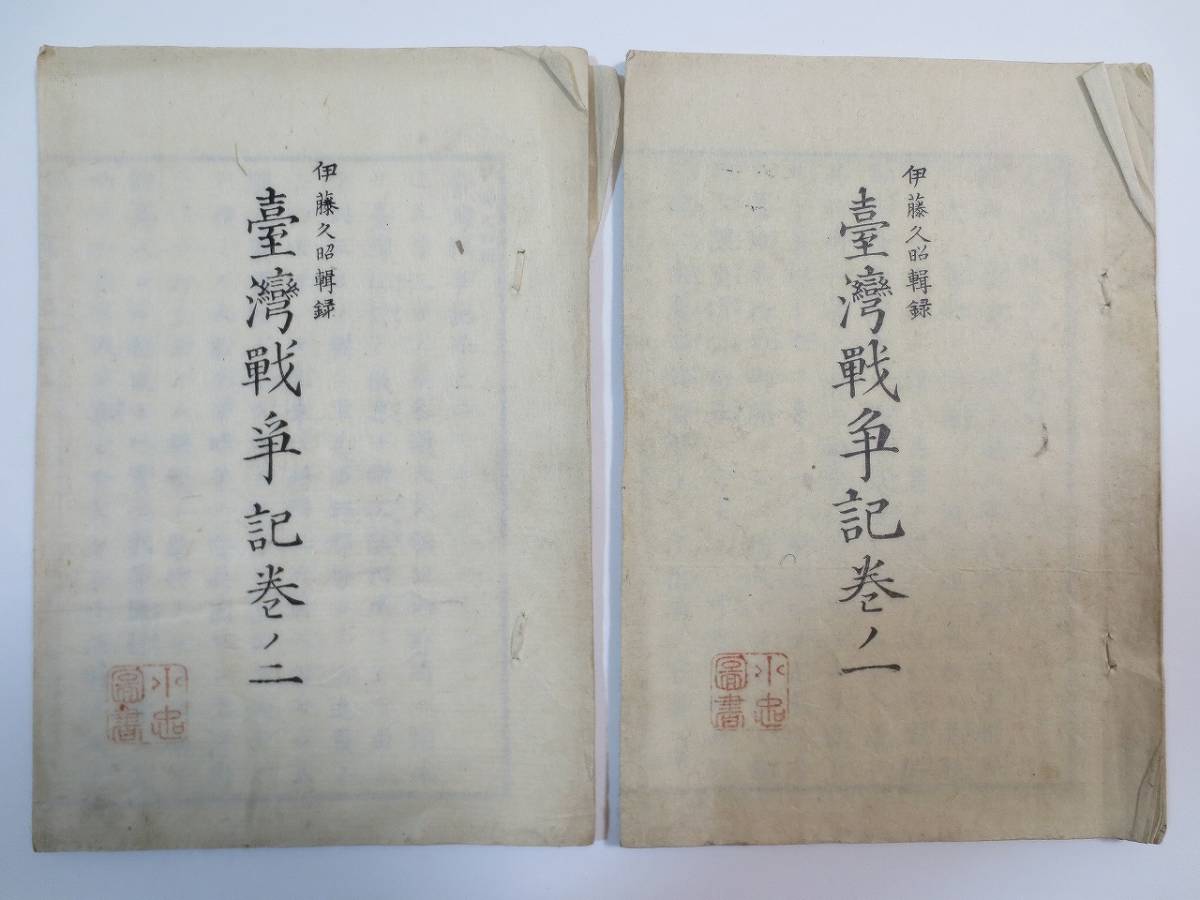 伊藤久昭輯録
臺灣戰争記巻ノ一
圖書
伊藤久昭輯録
臺灣戰爭記巻ノ二
圖書